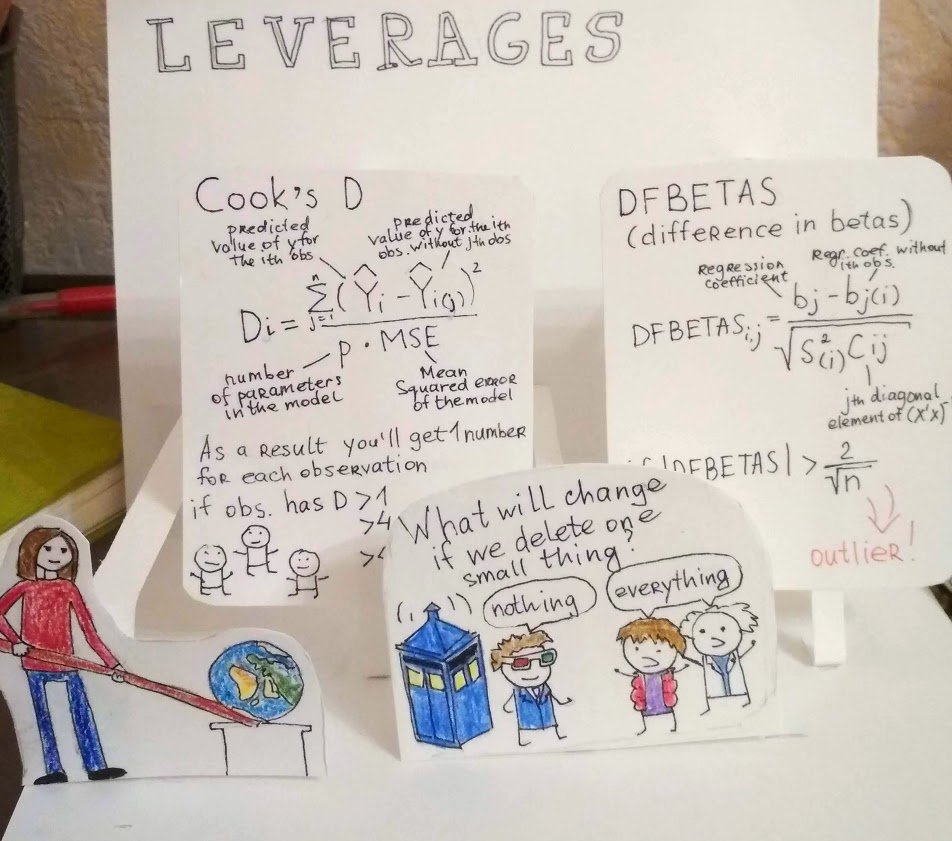 LEVERAGES
Cook's D
predicted
value of y for
the ith obs
predicted
value of y for the ith
obs. without jth obs
Di = n Σ j=i (Ŷi - Ŷi(j))² / p · MSE
number
of parameters
in the model
Mean
Squared error
of the model
As a result you'll get 1 number
for each observation
if obs. has D > 1
>4
>4
DFBETAS
(difference in betas)
Regression
coefficient
Regr. coef. without
ith obs.
DFBETASi,j = bj - bj(i) / √S²(i)Cij
jth diagonal
element of (X'X)⁻
|DFBETAS| > 2/√n
outlier!
What will change
if we delete one
small thing?
nothing
everything